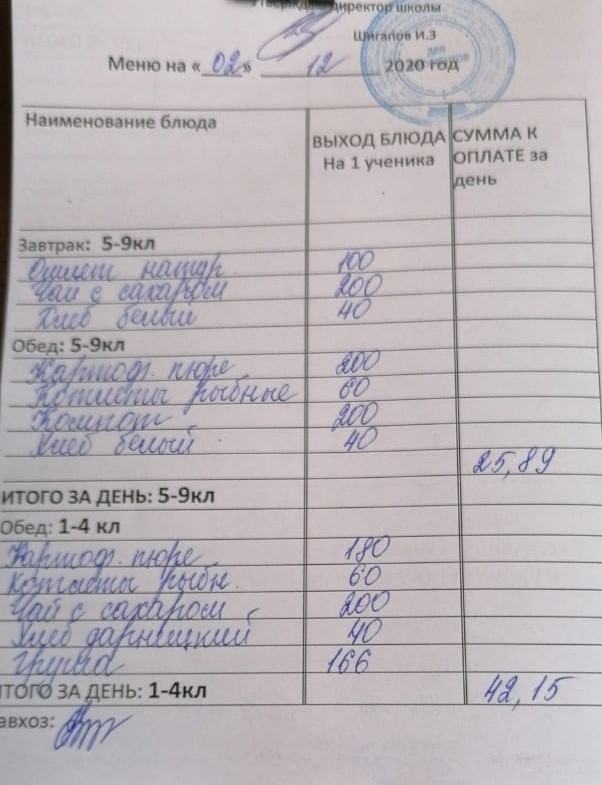 Утверждаю директор школы
Шигапов И.З
Меню на «02» 12 2020 год
Наименование блюда
ВЫХОД БЛЮДА На 1 ученика
СУММА К ОПЛАТЕ за день
Завтрак: 5-9кл
Омлет натур. 100
Чай с сахаром 200
Хлеб белый 40
Обед: 5-9кл
Картоф. пюре 200
Котлеты рыбные 60
Компот 200
Хлеб белый 40
25,89
ИТОГО ЗА ДЕНЬ: 5-9кл
Обед: 1-4 кл
Картоф. пюре 180
Котлеты рыбн. 60
Чай с сахаром 200
Хлеб дарницкий 40
Груша 166
ИТОГО ЗА ДЕНЬ: 1-4кл 42,15
завхоз: